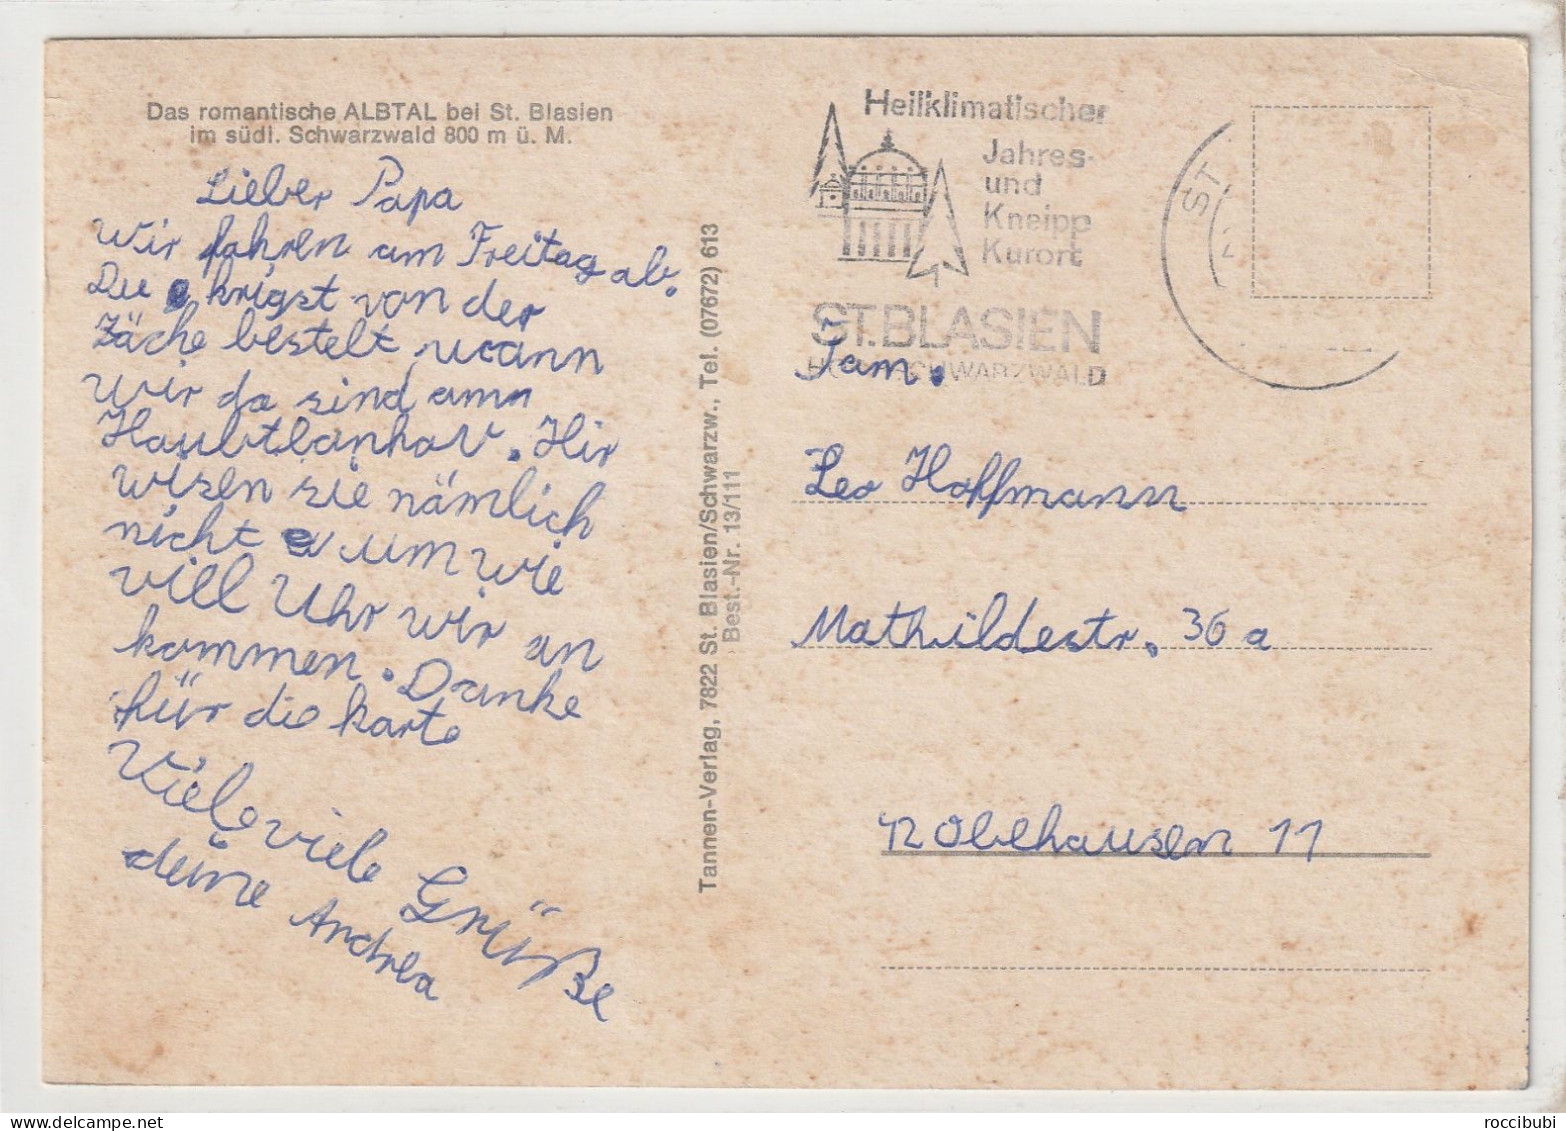 Das romantische ALBTAL bei St. Blasien
im südl. Schwarzwald 800 m ü. M.
Lieber Papa
Wir fahren am Freitag ab.
Du krigst von der
Zäche bestelt, wann
wir da sind am
Haubtbanhov. Hir
wisen sie nämlich
nicht um wie
viell Uhr wir an
kommen. Danke
für die karte
Viele viele Grüße
deine Andrea
Tannen-Verlag, 7822 St. Blasien/Schwarzw., Tel. (07672) 613
Best.-Nr. 13/111
Heilklimatischer
Jahres-
und
Kneipp
Kurort
ST. BLASIEN
SCHWARZWALD
ST
Fam.
Leo Hoffmann
Mathildestr. 36 a
42 Obehausen 11
roccibubi